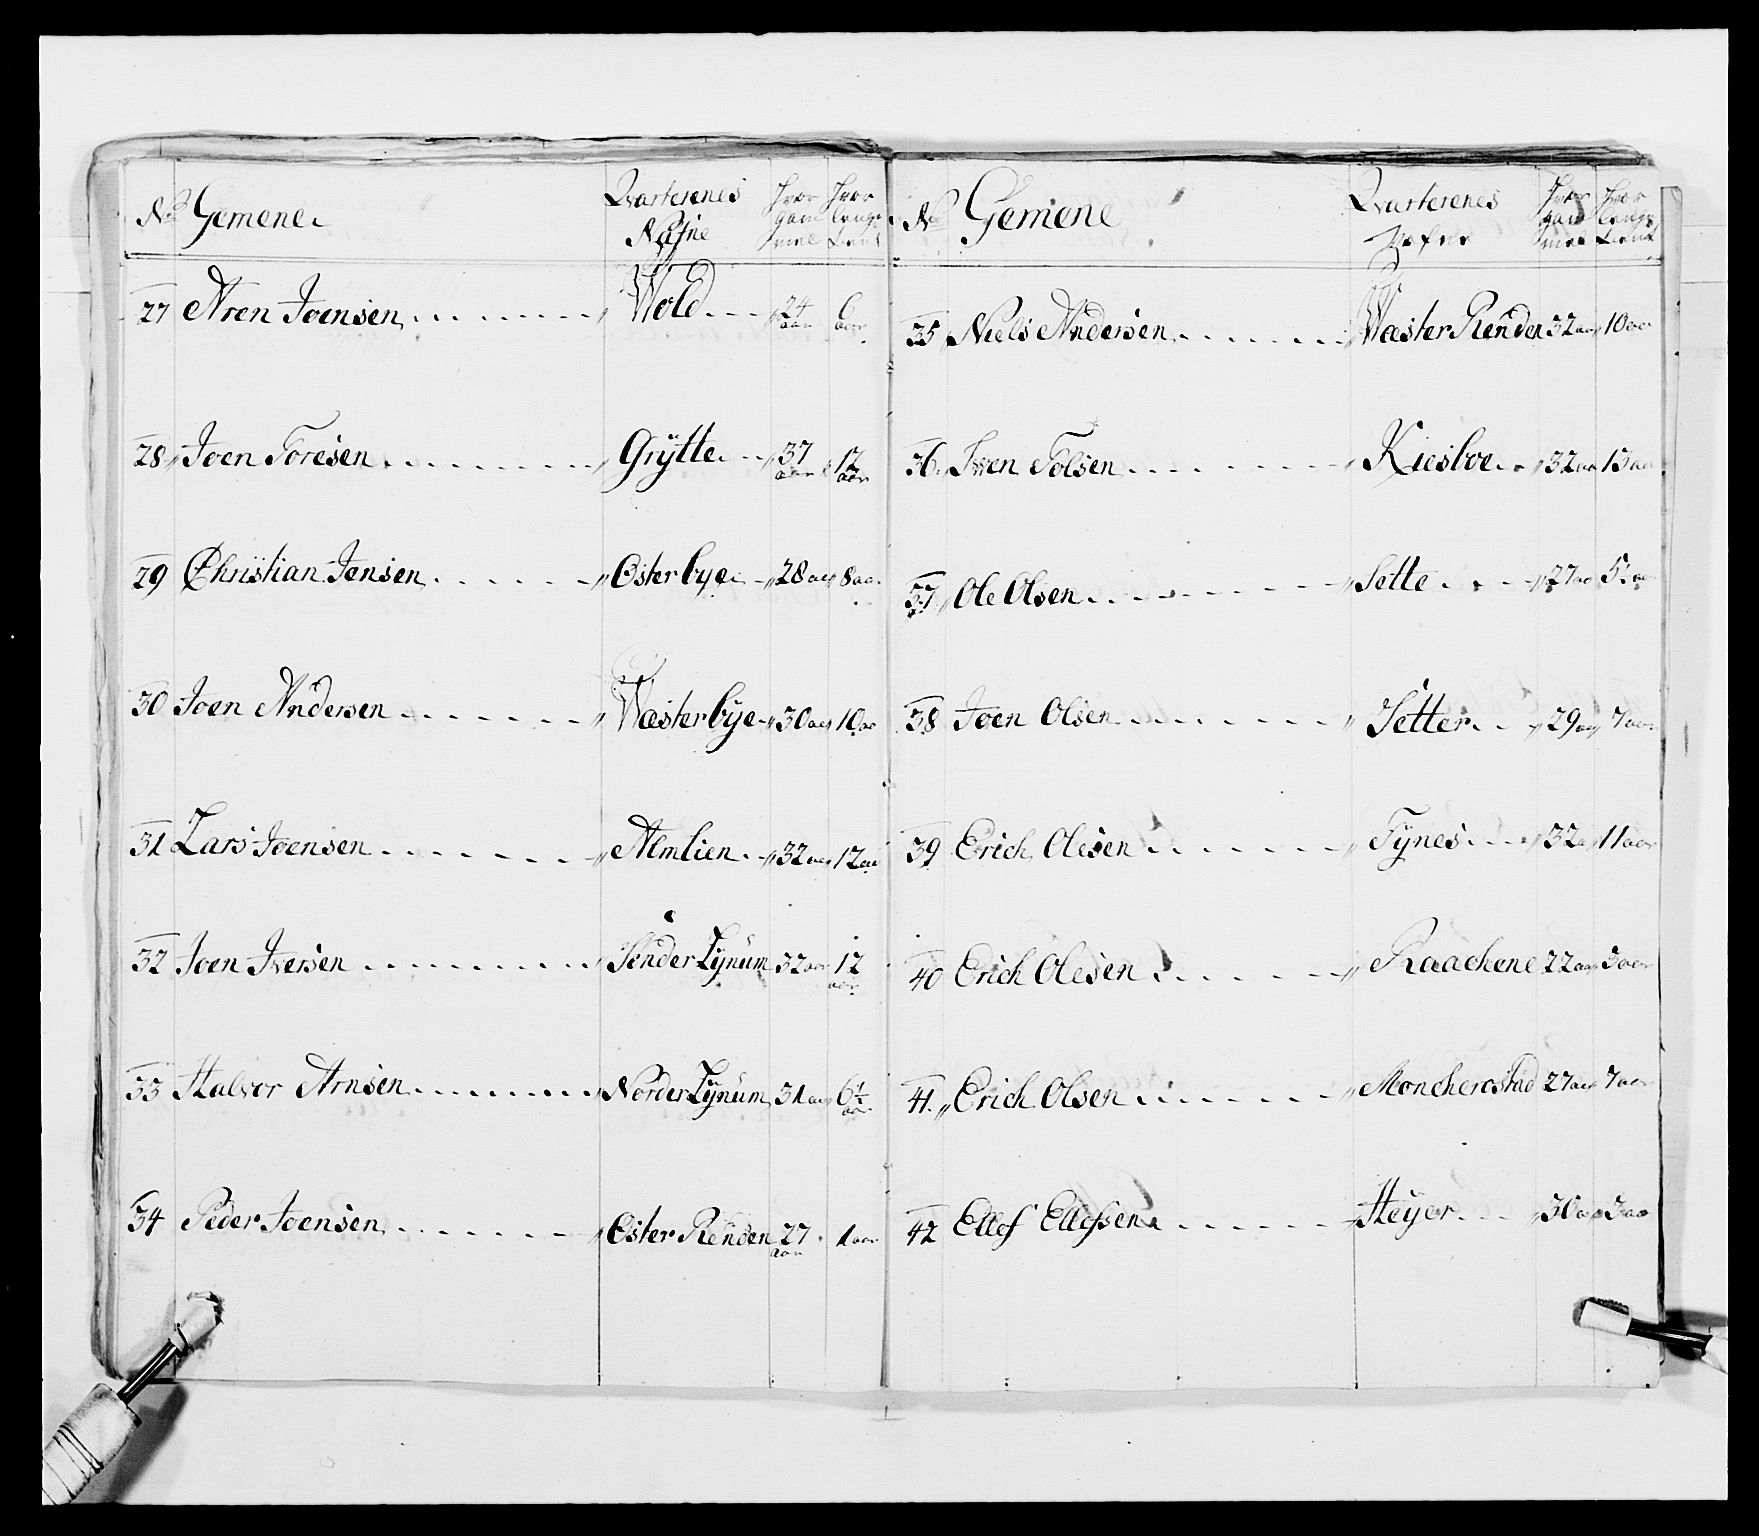 No Gemene Qvarterenes Nafne Hvor gammel Hvor lenge tient
27 Aren Joensen Wold 24 aar 6 aar
28 Joen Toresen Grÿtte 37 aar 12 aar
29 Christian Jensen Østerbye 28 aar 8 aar
30 Joen Andersen Wæsterbÿe 30 aar 10 aar
31 Lars Joensen Almlien 32 aar 12 aar
32 Joen Iversen Sønder Lÿnum 32 aar 12 aar
33 Halvor Arnsen Norder Lÿnum 31 aar 6½ aar
34 Peder Joensen Øster Renden 27 aar 1 aar
No Gemene Qvarterenes Nafne Hvor gammel Hvor lenge tient
35 Niels Andersen Wæster Renden 32 aar 10 aar
36 Iwen Tolsen Kiesboe 32 aar 13 aar
37 Ole Olsen Sette 27 aar 5 aar
38 Joen Olsen Setter 29 aar 7 aar
39 Erich Olesen Tÿnes 32 a 11 aar
40 Erich Olesen Raachene 22 aar 3 aar
41 Erich Olsen Moncherostad 27 aar 7 aar
42 Ellef Ellefsen Høÿer 30 aar 3 aar